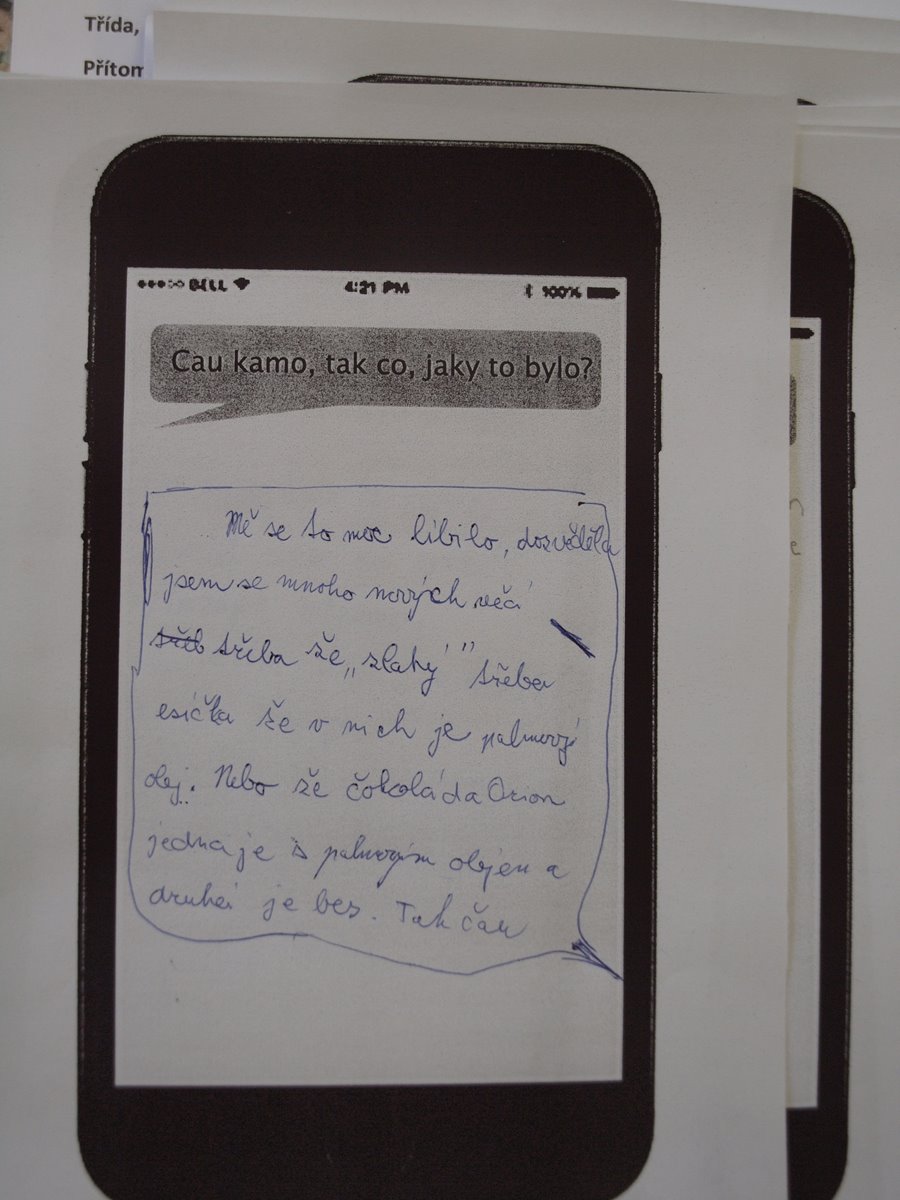 Třída,
Přítom
BELL 4:21 PM 100%
Cau kamo, tak co, jaky to bylo?
Mě se to moc líbilo, dozvěděla
jsem se mnoho nových věcí
třeb třeba že „zlatý" třeba
esíčka že v nich je palmový
olej. Nebo že čokoláda Orion
jedna je s palmovým olejem a
druhá je bez. Tak čau